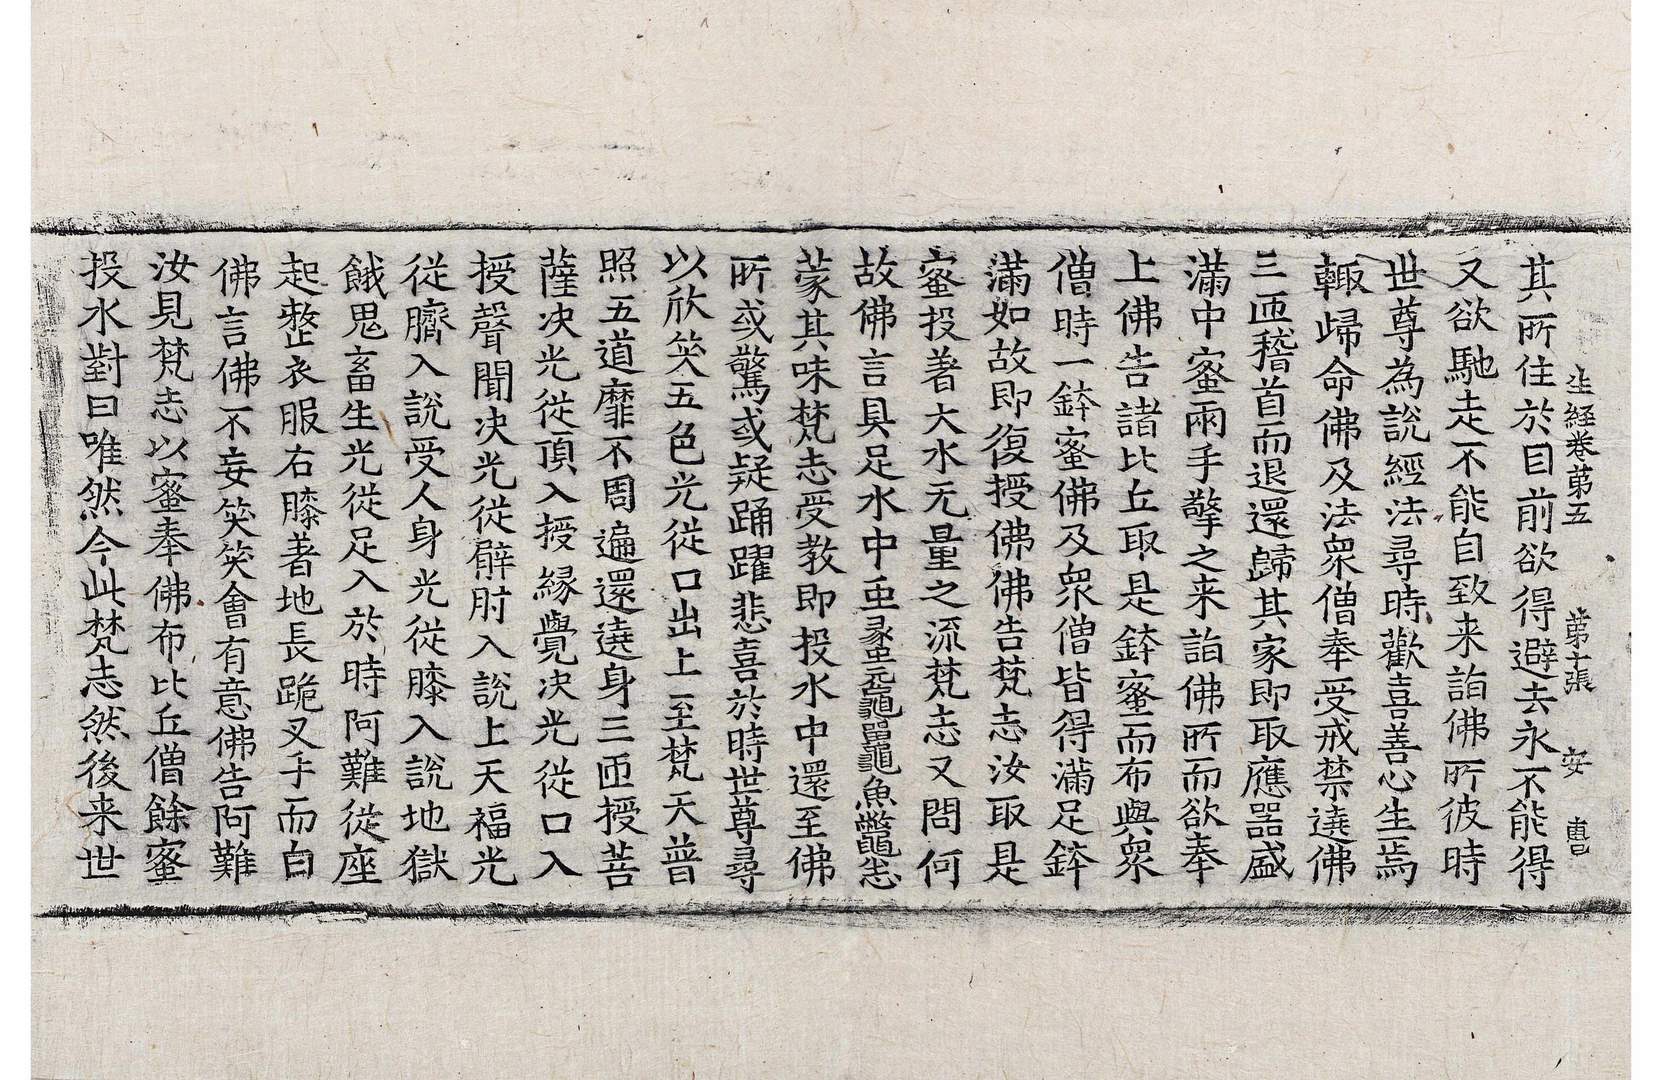 生経卷第五 第十張 安
其所住於目前欲得避去永不能得
又欲馳走不能自致来詣佛所彼時
世尊為說經法尋時歡喜善心生焉
輙歸命佛及法衆僧奉受戒禁遶佛
三匝稽首而退還歸其家即取應器盛
滿中蜜兩手擎之来詣佛所而欲奉
上佛告諸比丘取是鉢蜜而布與衆
僧時一鉢蜜佛及衆僧皆得滿足鉢
滿如故即復授佛佛告梵志汝取是
蜜投著大水无量之流梵志又問何
故佛言具足水中虫蟸黿鼉魚鼈悉
蒙其味梵志受教即投水中還至佛
所或驚或疑踊躍悲喜於時世尊尋
以欣笑五色光從口出上至梵天普
照五道靡不周遍還遶身三匝授菩
薩决光從頂入授緣覺决光從口入
授聲聞决光從臂肘入說上天福光
從臍入說受人身光從膝入說地獄
餓鬼畜生光從足入於時阿難從座
起整衣服右膝著地長跪叉手而白
佛言佛不妄笑笑會有意佛告阿難
汝見梵志以蜜奉佛布比丘僧餘蜜
投水對曰唯然今此梵志然後来世